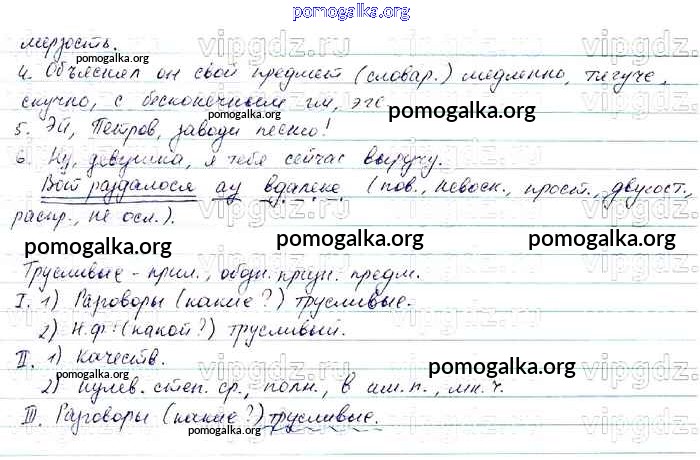 pomogalka.org
мерзость. pomogalka.org vipgdz.ru vipgdz.ru
4. Объяснял он свой предмет (словар.) медленно, тягуче,
скучно, с бесконечным гм, эге pomogalka.org
5. Эй, Петров, заводи песню! pomogalka.org
6. Ну, девушка, я тебе сейчас выручу.
Вот раздалося ау вдалеке (пов., невоск., прост., двусост.,
распр., не осл.). vipgdz.ru
pomogalka.org pomogalka.org pomogalka.org
Трусливые - прил., обозн. призн. предм.
I. 1) Разговоры (какие?) трусливые.
2) Н.ф. (какой?) трусливый.
II. 1) Качеств. pomogalka.org
pomogalka.org
2) нулев. степ. ср., полн., в им.п., мн.ч.
III. Разговоры (какие?) трусливые.
pomogalka.org